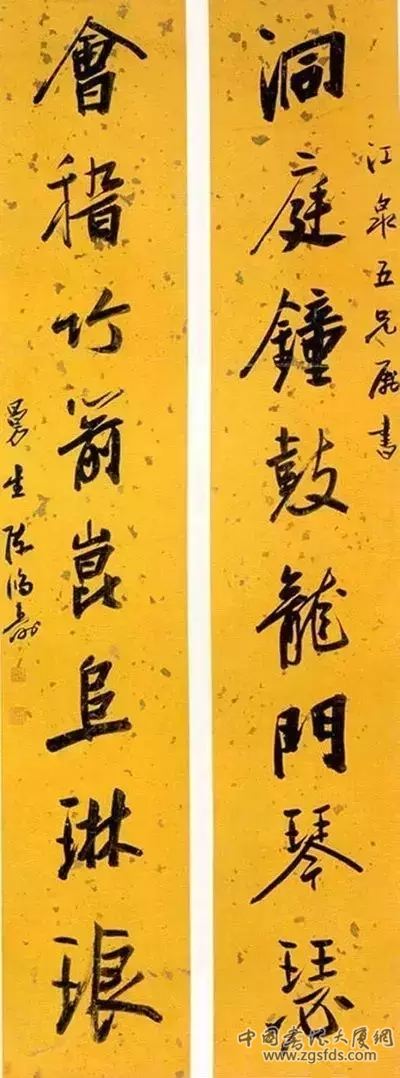 江泉五兄屬書
洞庭鐘鼓龍門琴瑟
會稽竹箭崑阜琳琅
曼生陳鴻壽
中國書法大廈網
www.zgsfds.com